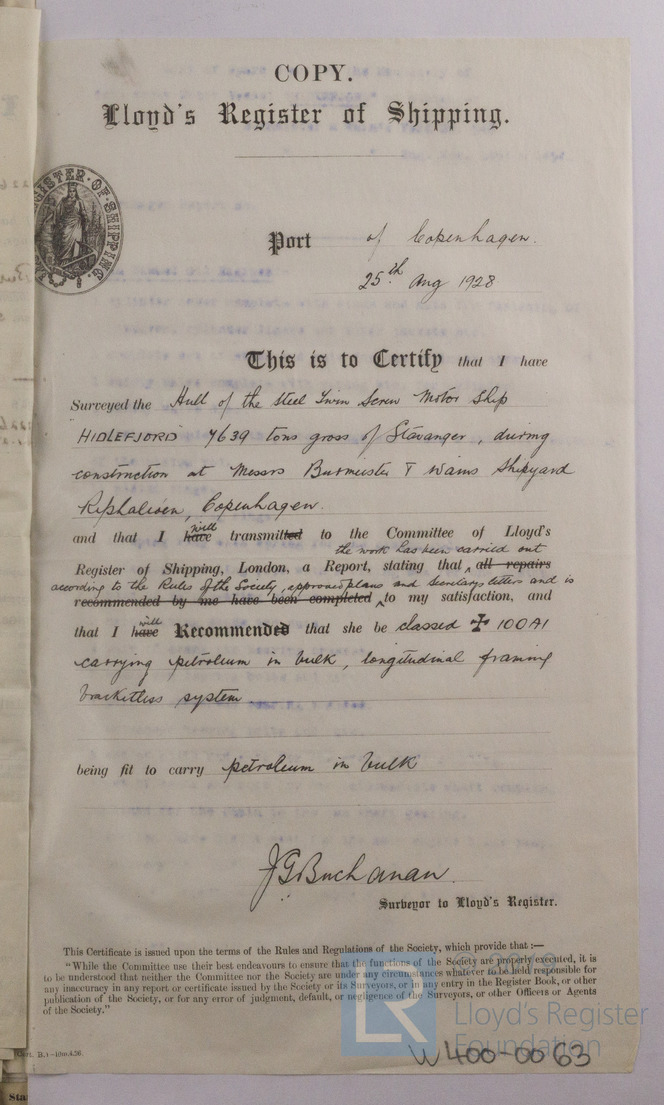 COPY.
Lloyd's Register of Shipping.
REGISTER·OF·SHIPPING.
Port of Copenhagen.
25th Aug 1928
This is to Certify that I have
Surveyed the Hull of the steel Twin Screw Motor Ship
HIDLEFJORD 7639 tons gross of Stavanger, during
construction at Messrs Burmeister & Wains Shipyard
Copenhagen.
will
and that I have transmitted to the Committee of Lloyd's
the work has been carried out
Register of Shipping, London, a Report, stating that all repairs
according to the Rules of the Society, approved plans and Secretarys letters and is
recommended by me have been completed to my satisfaction, and
will
that I have Recommended that she be classed ✠ 100A1
carrying petroleum in bulk, longitudinal framing
bracketless system
being fit to carry petroleum in bulk
J G Buchanan.
Surveyor to Lloyd's Register.
This Certificate is issued upon the terms of the Rules and Regulations of the Society, which provide that :—
"While the Committee use their best endeavours to ensure that the functions of the Society are properly executed, it is
to be understood that neither the Committee nor the Society are under any circumstances whatever to be held responsible for
any inaccuracy in any report or certificate issued by the Society or its Surveyors, or in any entry in the Register Book, or other
publication of the Society, or for any error of judgment, default, or negligence of the Surveyors, or other Officers or Agents
of the Society."
© 2020
LR
Lloyd's Register
Foundation
W400-0063